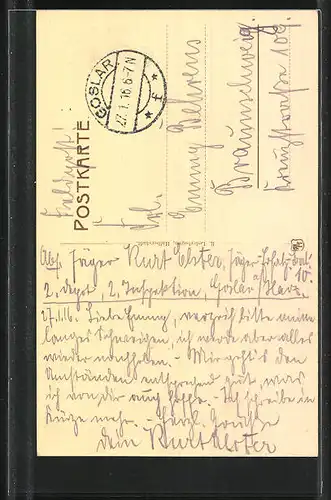 Feldpost!
POSTKARTE
GOSLAR
27.1.16.6-7N
* F *
Frl.
Emmy Behrens
Braunschweig.
Kreuzstrasse 106.
Abs. Jäger Kurt Elster, Jäger-Ersatz-Batl. 10.
2. Depot, 2. Inspektion, Goslar a/Harz.
27.1.16. Liebe Emmy, verzeih bitte mein
langes Schweigen, ich werde aber alles
wieder nachholen. - Mir geht's den
Umständen entsprechend gut, was
ich von Dir auch hoffe. - Ich schreibe in
Kürze mehr. - Herzl. Grüsse
Dein Kurt Elster